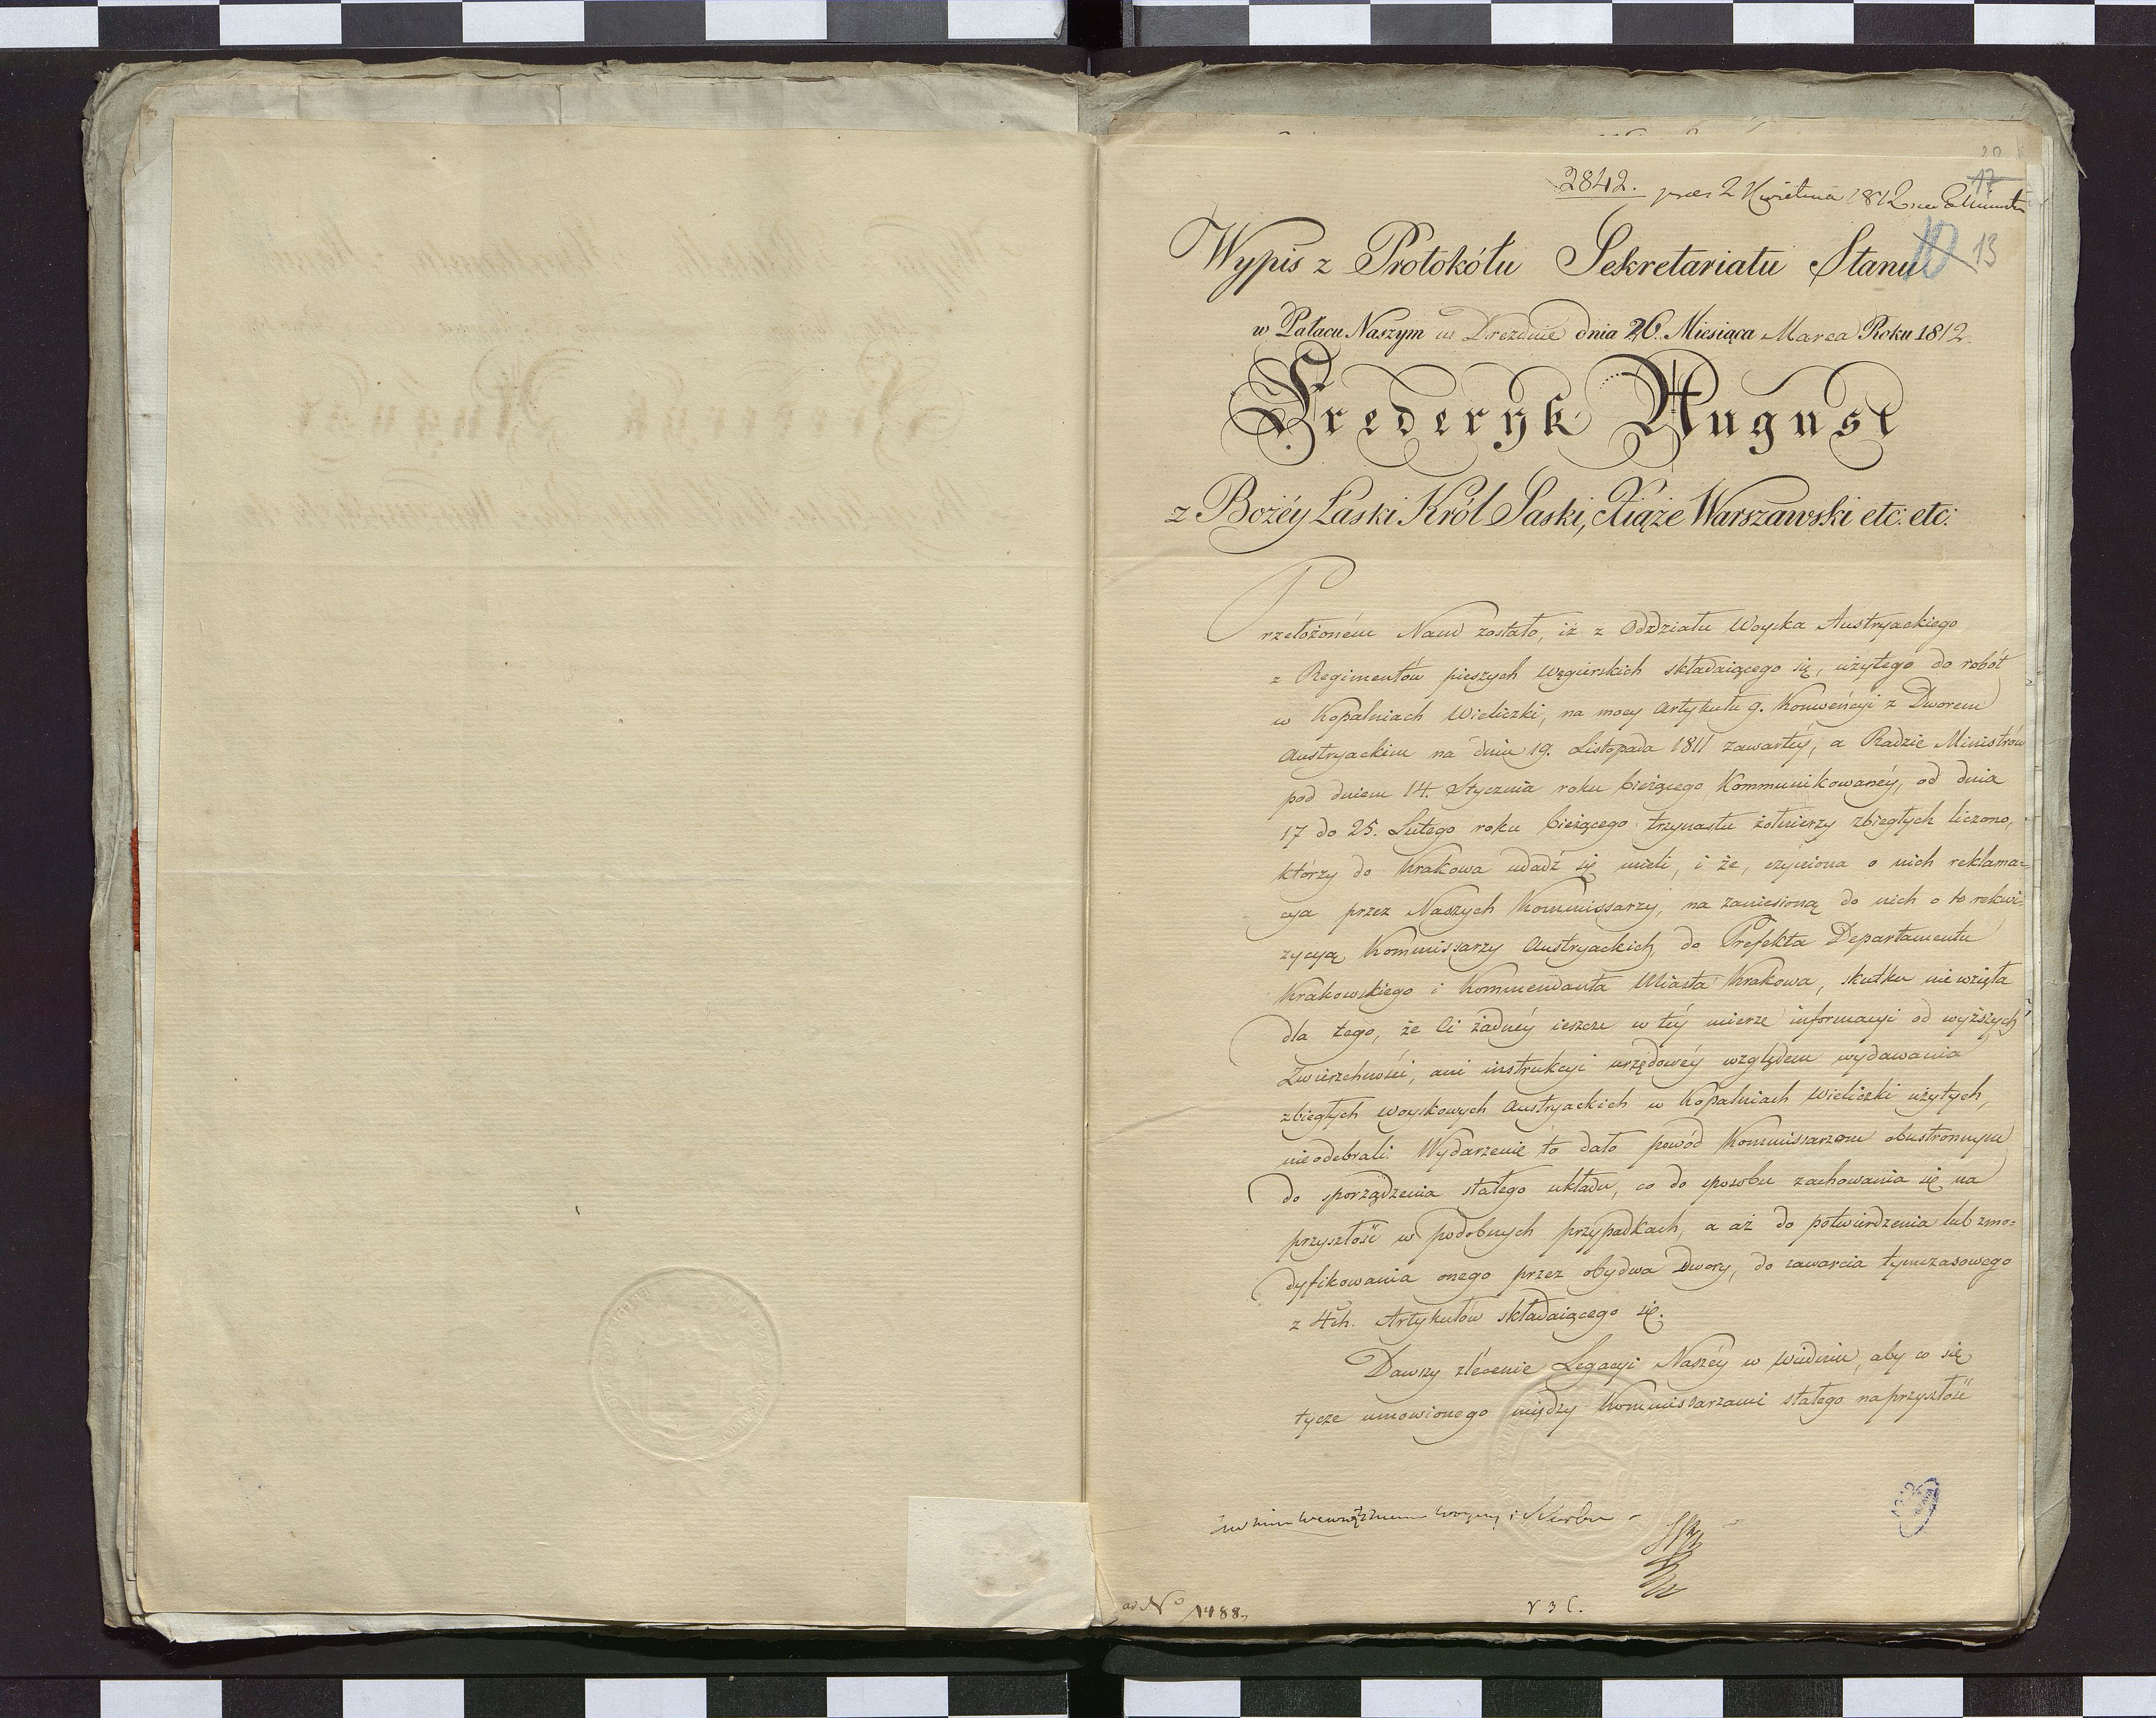 2842. 2 Kwietnia 1812
17
10 13
Wypis z Protokółu Sekretariatu Stanu
w Pałacu Naszym w Dreźnie dnia 26. Miesiąca Marca Roku 1812.
Frederyk August
z Bożéy Łaski Król Saski, Xiąże Warszawski etc: etc:
Przełożoném Nam zostało, iż z Oddziału Woyska Austryackiego
z Regimentów pieszych Węgierskich składaiącego się, użytego do robót
w Kopalniach Wieliczki, na mocy Artykułu 9. Konwencyi z Dworem
Austryackim na dniu 19. Listopada 1811 zawartéy, a Radzie Ministrów
pod dniem 14. Stycznia roku bieżącego Kommunikowanéy, od dnia
17 do 25. Lutego roku bieżącego trzynastu żołnierzy zbiegłych liczono,
którzy do Krakowa udadź się mieli, i że, czyniona o nich reklama=
cya przez Naszych Kommissarzy, na zaniesioną do nich o to rekwi=
zycyą Kommissarzy Austryackich, do Prefekta Departamentu
Krakowskiego i Kommendanta Miasta Krakowa, skutku nie wzięła
dla tego, że Ci żadnéy ieszcze w téy mierze informacyi od wyższych
Zwierzchności, ani instrukcyi urzędowéy względem wydawania
zbiegłych woyskowych Austryackich w Kopalniach Wieliczki użytych,
nie odebrali. Wydarzenie to dało powód Kommissarzom obustronnym
do sporządzenia stałego układu, co do sposobu zachowania się na
przyszłość w podobnych przypadkach, a aż do potwierdzenia lub zmo=
dyfikowania onego przez obydwa Dwory, do zawarcia tymczasowego
z 4ch. Artykułów składaiącego się.
Dawszy zlécenie Legacyi Naszéy w Wiedniu, aby co się
tycze umowionego między Kommissarzami stałego na przyszłość
i Skarbu
ad No 1488.